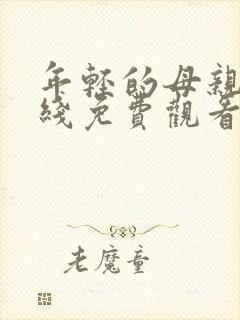 年輕的母親
綫免費觀看
老魔童